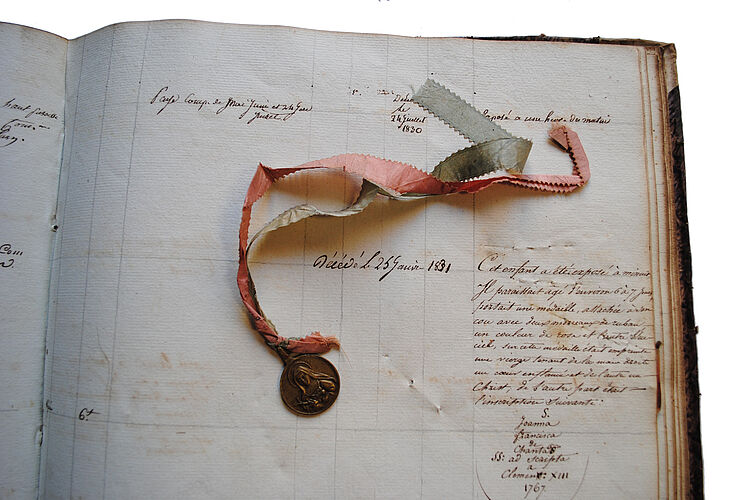 Payé Comp. de Mai Juin et 24 Jours
Juillet
Le
24 Juillet
1830
Exposé a une heure du matin
Décédé Le 25 Janvier 1831
6t
Cet enfant a été exposé a minuit
Il paraissait agé d'environ 6 a 7 jours
portait une medaille, attachée a son
cou avec deux morceaux de ruban
un couleur de rose et l'autre bleu
ciel, sur cette medaille etait empreinte
une vierge tenant de la main droite
un cœur enflamé et de l'autre un
Christ, de l'autre part était
l'inscription Suivante :
S.
Joanna
francisca
de
Chantal
SS: ad Scripta
a
Clement: XIII
1767.